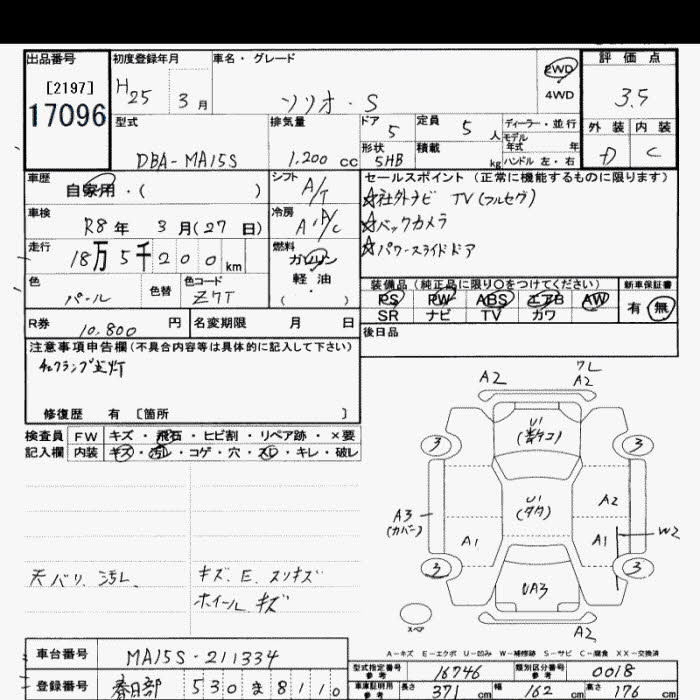 出品番号
[2197]
17096
初度登録年月
H25 3月
車名・グレード
ソリオ・S
2WD
4WD
評価点
3.5
外装 内装
D C
型式
DBA-MA15S
排気量
1,200 cc
ドア
5
定員
5人
形状
5HB
積載
kg
ディーラー・並行
モデル年式 年
ハンドル 左・右
車歴
自家用・( )
シフト
A/T
車検
R8年 3月(27日)
冷房
A・A/C
走行
18万5千200km
燃料
ガソリン
軽・油
( )
色
パール
色替
色コード
Z7T
セールスポイント(正常に機能するものに限ります)
☆社外ナビ TV(フルセグ)
☆バックカメラ
☆パワースライドドア
装備品(純正品に限り○をつけてください)
PS PW ABS エアB AW
SR ナビ TV カワ
新車保証書
有・無
R券
10.800円
名変期限 月 日
後日品
注意事項申告欄(不具合内容等は具体的に記入して下さい)
チェックランプ点灯
修復歴 有 〔箇所 〕
検査員 FW キズ・飛石・ヒビ割・リペア跡・×要
記入欄 内装 キズ・汚レ・コゲ・穴・スレ・キレ・破レ
天バリ 汚レ
キズ. E. スリキズ
ホイール キズ
A2
ワレ
A2
U1
3
3
U1
A3
(カバー)
A2
A1
A1
W2
3
3
UA3
スペア
A2
A-キズ E-エクボ U-凹み W-補修跡 S-サビ C-腐食 XX-交換済
車台番号
MA15S-211334
登録番号
春日部 530 ま 8110
型式指定番号 参考
16746
類別区分番号 参考
0018
車庫証明用 参考
長さ 371 cm
幅 162 cm
高さ 176 cm